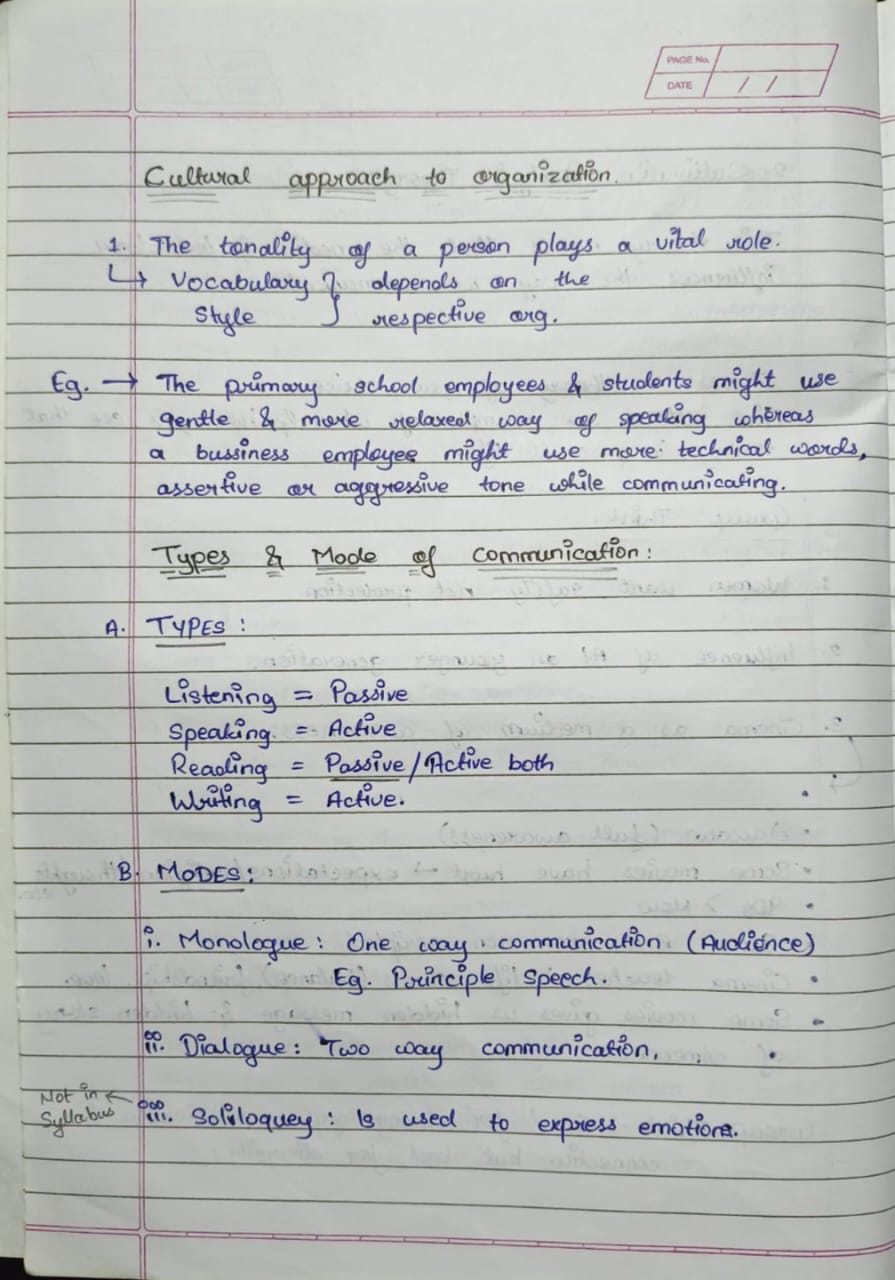 PAGE No.
DATE / /
Cultural approach to organization.
1. The tonality of a person plays a vital role.
↳ Vocabulary } depends on the
Style } respective org.
Eg. → The primary school employees & students might use
gentle & more relaxed way of speaking whereas
a bussiness employee might use more technical words,
assertive or aggressive tone while communicating.
Types & Mode of communication:
A. TYPES:
Listening = Passive
Speaking = Active
Reading = Passive/Active both
Writing = Active.
B. MODES:
i. Monologue: One way communication (Audience)
Eg. Principle Speech.
ii. Dialogue: Two way communication.
Not in ←
Syllabus
iii. Soliloquey: Is used to express emotions.